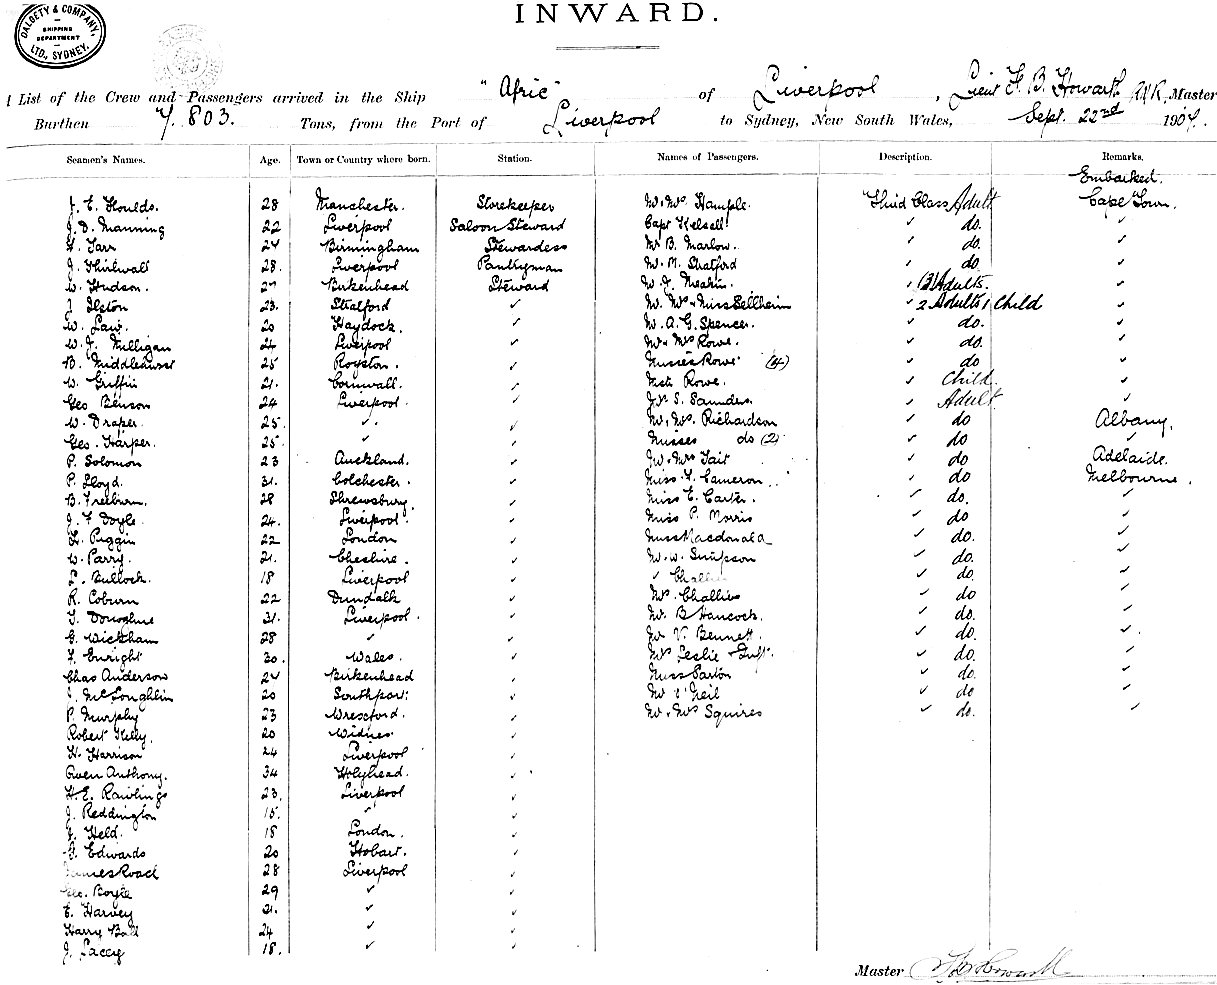 DALGETY & COMPANY,
SHIPPING
DEPARTMENT
LTD., SYDNEY.
INWARD.
List of the Crew and Passengers arrived in the Ship "Afric" of Liverpool, Lieut F. B. Howarth RNR, Master
Burthen 7.803. Tons, from the Port of Liverpool to Sydney, New South Wales, Sept. 22nd 1904.
Seamen's Names. Age. Town or Country where born. Station. Names of Passengers. Description. Remarks.
Embarked.
28 Manchester. Storekeeper Hample. Third Class Adult Cape Town.
J. D. Manning 22 Liverpool Saloon Steward Capt Kelsell ✓ do. ✓
Tarr 24 Birmingham Stewardess Mr B. Marlow. ✓ do. ✓
J. Thirlwall 28. Liverpool Pantryman M. Stratford ✓ do ✓
W. Hudson. 27 Birkenhead Steward Meakin. ✓ (3) Adults. ✓
J Elston 23. Stratford ✓ Mr. Mrs & Miss Sellheim ✓ 2 Adults 1 Child ✓
W. Law. 20 Haydock. ✓ A. G. Spencer. ✓ do. ✓
Milligan 24 Liverpool ✓ Mr & Mrs Rowe. ✓ do. ✓
25 Royston. ✓ Misses Rowe (4) ✓ do ✓
W. Griffin 21. Cornwall. ✓ Rowe. ✓ Child. ✓
Geo Benson 24 Liverpool. ✓ S. Saunders. ✓ Adult ✓
W. Draper. 25. ✓ ✓ Mr. Mrs. Richardson ✓ do Albany.
Geo. Harper. 25. ✓ ✓ Misses do (2) ✓ do ✓
P. Solomon 23 Auckland. ✓ Mr & Mrs Tait ✓ do Adelaide.
P. Lloyd. 31. Colchester. ✓ Miss Cameron ✓ do Melbourne.
B. Freeburn. 28 Shrewsbury. ✓ Miss E. Carter. ✓ do. ✓
J. F Doyle. 24. Liverpool. ✓ Miss P. Morris ✓ do ✓
Piggin 22 London ✓ Miss Macdonald ✓ do. ✓
W. Parry. 21. Cheshire. ✓ Mr. W. Simpson ✓ do. ✓
Bullock. 18 Liverpool ✓ ✓ ✓ do. ✓
R. Coburn 22 Dundalk ✓ Mrs. Challis ✓ do ✓
Donoghue 31. Liverpool. ✓ Mr. B Hancock. ✓ do. ✓
G. Wickham 28 ✓ ✓ Mr V. Bennett. ✓ do. ✓
Enright 30. Wales. ✓ Mrs Leslie & Inft. ✓ do. ✓
Chas Anderson 24 Birkenhead ✓ Miss ✓ do. ✓
J. McLoughlin 20 Southport. ✓ Mr O'Neil ✓ do ✓
P. Murphy 23 Wrexford. ✓ Mr. Mrs Squires ✓ do. ✓
Robert Kelly. 20 Widnes ✓
H. Harrison 24 Liverpool ✓
Owen Anthony. 34 Holyhead. ✓
H. E. Rawlings 23. Liverpool ✓
J. Reddington 15. ✓ ✓
Held. 18 London. ✓
Edwards 20 Hobart. ✓
James Roach 28 Liverpool ✓
Geo. Boyle 29 ✓ ✓
E. Harvey 21. ✓ ✓
Harry Ball 24 ✓ ✓
J. Lacey 18. ✓ ✓
Master F B Howarth